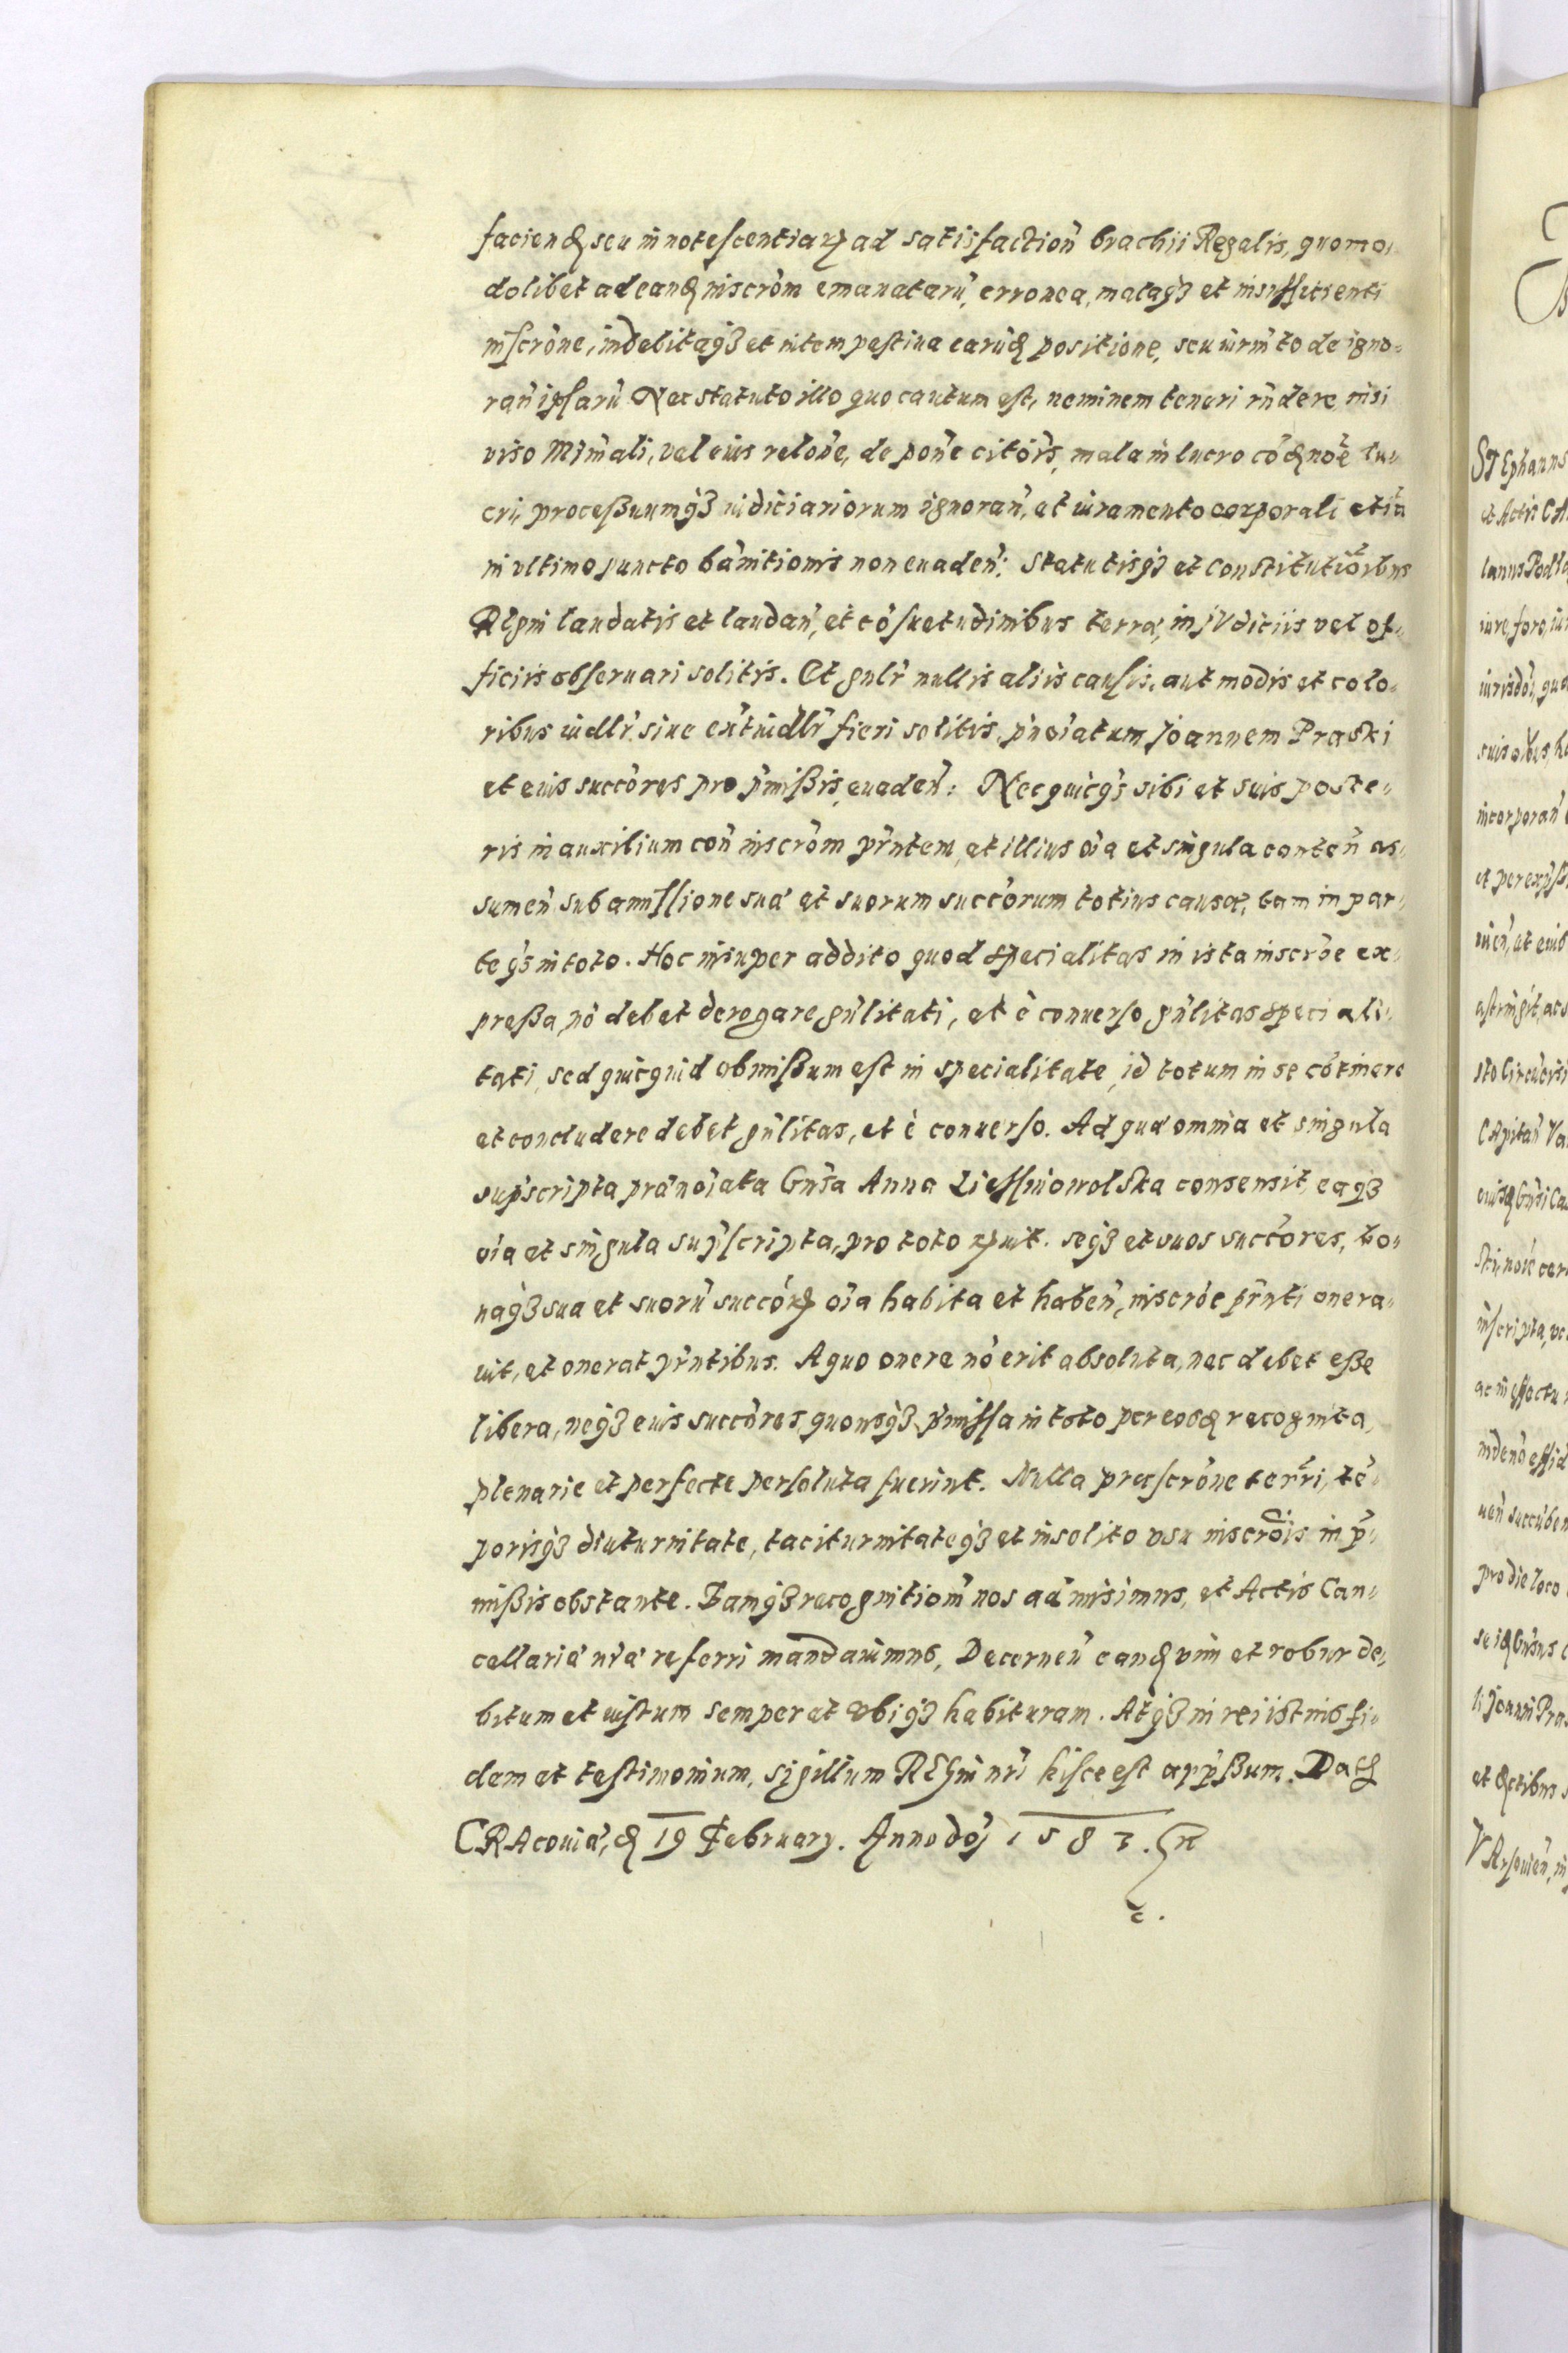 faciend seu innotescentiarꝝ ad satisfaction̄ brachii Regalis, quomo-
dolibet ad eand inscrōm emanatarū, erronea, malaqꝫ et insufficienti
inscrōne, indebitaqꝫ et intempestiua earūd positione, seu iurmto de igno-
ran̄ ipsarū Nec statuto illo quo cautum est, neminem teneri rn̄dere nisi
viso Mīnali, vel eius relōne, de pōne citōis, mala in lucro cōdnōe tu-
eri, processuumqꝫ iudiciariorum ignoran̄, et iuramento corporali etiā
in vltimo puncto banitionis non euaden̄: Statutisqꝫ et Constitutiōibus
REgni laudatis et laudan̄, et cōsuetudinibus terræ, in jVdiciis vel of-
ficiis obseruari solitis. Et gnlr̄ nullis aliis causis, aut modis et colo-
ribus iudlr̄ siue extraiudlr̄ fieri solitis, pn̄oiatum Joannem Praski
et eius succōres pro pmissis, euaden̄: Nec quicqꝫ sibi et suis poste-
ris in auxilium con̄ inscrōm pn̄tem, et illius oīa et singula conten̄ as-
sumen̄ sub amissione suæ et suorum succōrum totius causæ, tam in par-
te qꝫ in toto. Hoc insuper addito quod specialitas in ista inscrōe ex-
pressa, nō debet derogare gn̄litati, et è conuerso, gn̄litas speciali-
tati, sed quicquid obmissum est in specialitate, id totum in se cōtinere
et concludere debet gn̄litas, et è conuerso. Ad quæ omnia et singula
supscripta prænoīata Gn̄sa Anna Liessniowolska consensit, eaqꝫ
oīa et singula supscripta, pro toto rꝫuit. seqꝫ et suos succōres, bo-
naqꝫ sua et suorū succōrꝝ oīa habita et haben̄, inscrōe pn̄ti onera-
uit, et onerat pn̄tibus. A quo onere nō erit absoluta, nec debet esse
libera, neqꝫ eius succōres, quousqꝫ pmissa in toto per eosd recognita,
plenarie et perfecte persoluta fuerint. Nulla præscrōne terr̄i, tē-
porisqꝫ diuturnitate, taciturnitateqꝫ et insolito vsu inscrōis in p-
missis obstante. Eamqꝫ recognitiom̄ nos admisimus, et Actis Can-
cellariæ nr̄æ referri mandauimus, Decernen̄ eand vim et robur de-
bitum et iustum semper et vbiqꝫ habituram. Atqꝫ in rei istius fi-
dem et testimonium, sigillum REgni nr̄i hisce est appssum. Datt
CRAcouiæ, d 19 February. Anno dōj 1583. Rn
c.
STEphanus
et Actis CA
lanus Podla
iure, foro, iu
iurisdōi, qua
incorporan̄
astringit, ac s
Sto Circūscri
CApitan̄ Va
ski, noīe
inscripta,
ac in effectu
pro die loco
li Joanni Pra
VArsouien̄, in